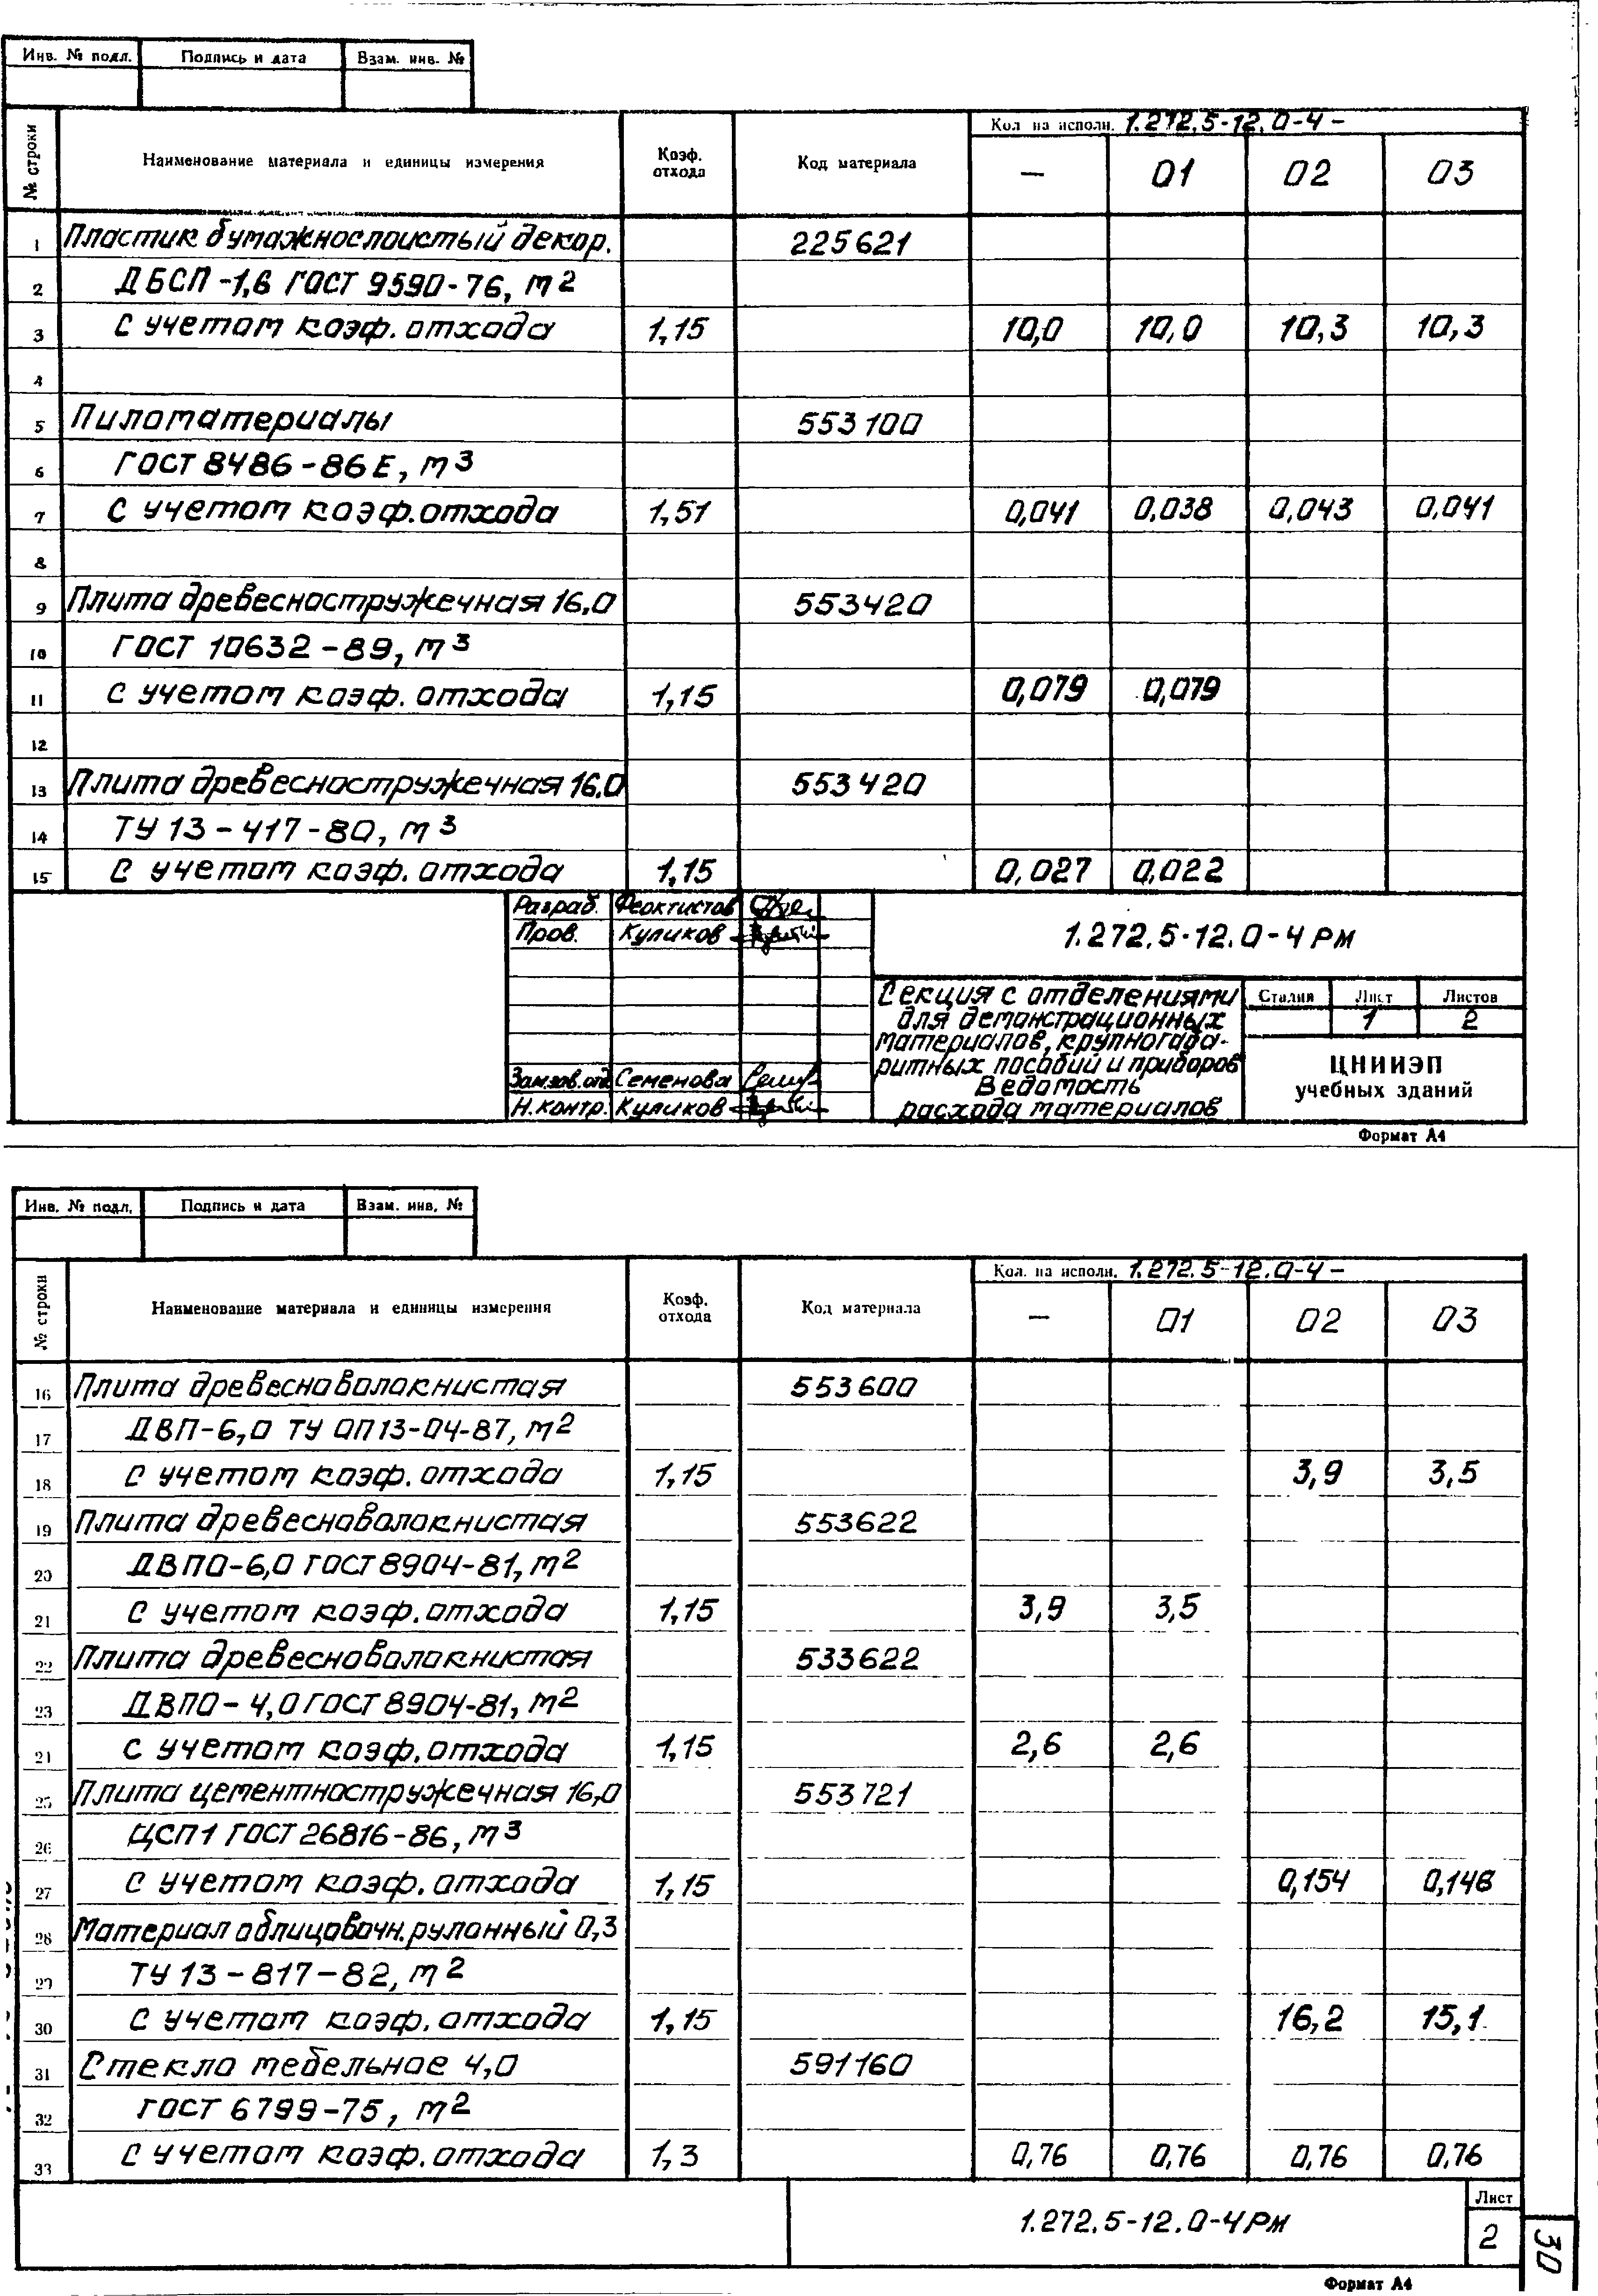 Инв. № подл. Подпись и дата Взам. инв. №
№ строки Наименование материала и единицы измерения Коэф. отхода Код материала Кол на исполн. 1.272.5-12.0-4-
— 01 02 03
1 Пластик бумажнослоистый декор. 225621
2 ДБСП-1,6 ГОСТ 9590-76, м2
3 С учетом коэф. отхода 1,15 10,0 10,0 10,3 10,3
4
5 Пиломатериалы 553100
6 ГОСТ 8486-86Е, м3
7 С учетом коэф. отхода 1,51 0,041 0,038 0,043 0,041
8
9 Плита древесностружечная 16,0 553420
10 ГОСТ 10632-89, м3
11 С учетом коэф. отхода 1,15 0,079 0,079
12
13 Плита древесностружечная 16.0 553420
14 ТУ 13-417-80, м3
15 С учетом коэф. отхода 1,15 0,027 0,022
Разраб. Феоктистов
Пров. Куликов
1.272.5-12.0-4 РМ
Секция с отделениями
для демонстрационных
материалов, крупногаба-
ритных пособий и приборов
Ведомость
расхода материалов
Стадия Лист Листов
1 2
ЦНИИЭП
учебных зданий
Зам.зав.отд Семенова
Н.контр. Куликов
Формат А4
Инв. № подл. Подпись и дата Взам. инв. №
№ строки Наименование материала и единицы измерения Коэф. отхода Код материала Кол. на исполн. 1.272.5-12.0-4-
— 01 02 03
16 Плита древесноволокнистая 553600
17 ДВП-6,0 ТУ ОП13-04-87, м2
18 С учетом коэф. отхода 1,15 3,9 3,5
19 Плита древесноволокнистая 553622
20 ДВПО-6,0 ГОСТ 8904-81, м2
21 С учетом коэф. отхода 1,15 3,9 3,5
22 Плита древесноволокнистая 533622
23 ДВПО-4,0 ГОСТ 8904-81, м2
21 С учетом коэф. отхода 1,15 2,6 2,6
25 Плита цементностружечная 16,0 553721
26 ЦСП1 ГОСТ 26816-86, м3
27 С учетом коэф. отхода 1,15 0,154 0,146
28 Материал облицовочн. рулонный 0,3
29 ТУ 13-817-82, м2
30 С учетом коэф. отхода 1,15 16,2 15,1
31 Стекло мебельное 4,0 591160
32 ГОСТ 6799-75, м2
33 С учетом коэф. отхода 1,3 0,76 0,76 0,76 0,76
1.272.5-12.0-4РМ
Лист
2
30
Формат А4